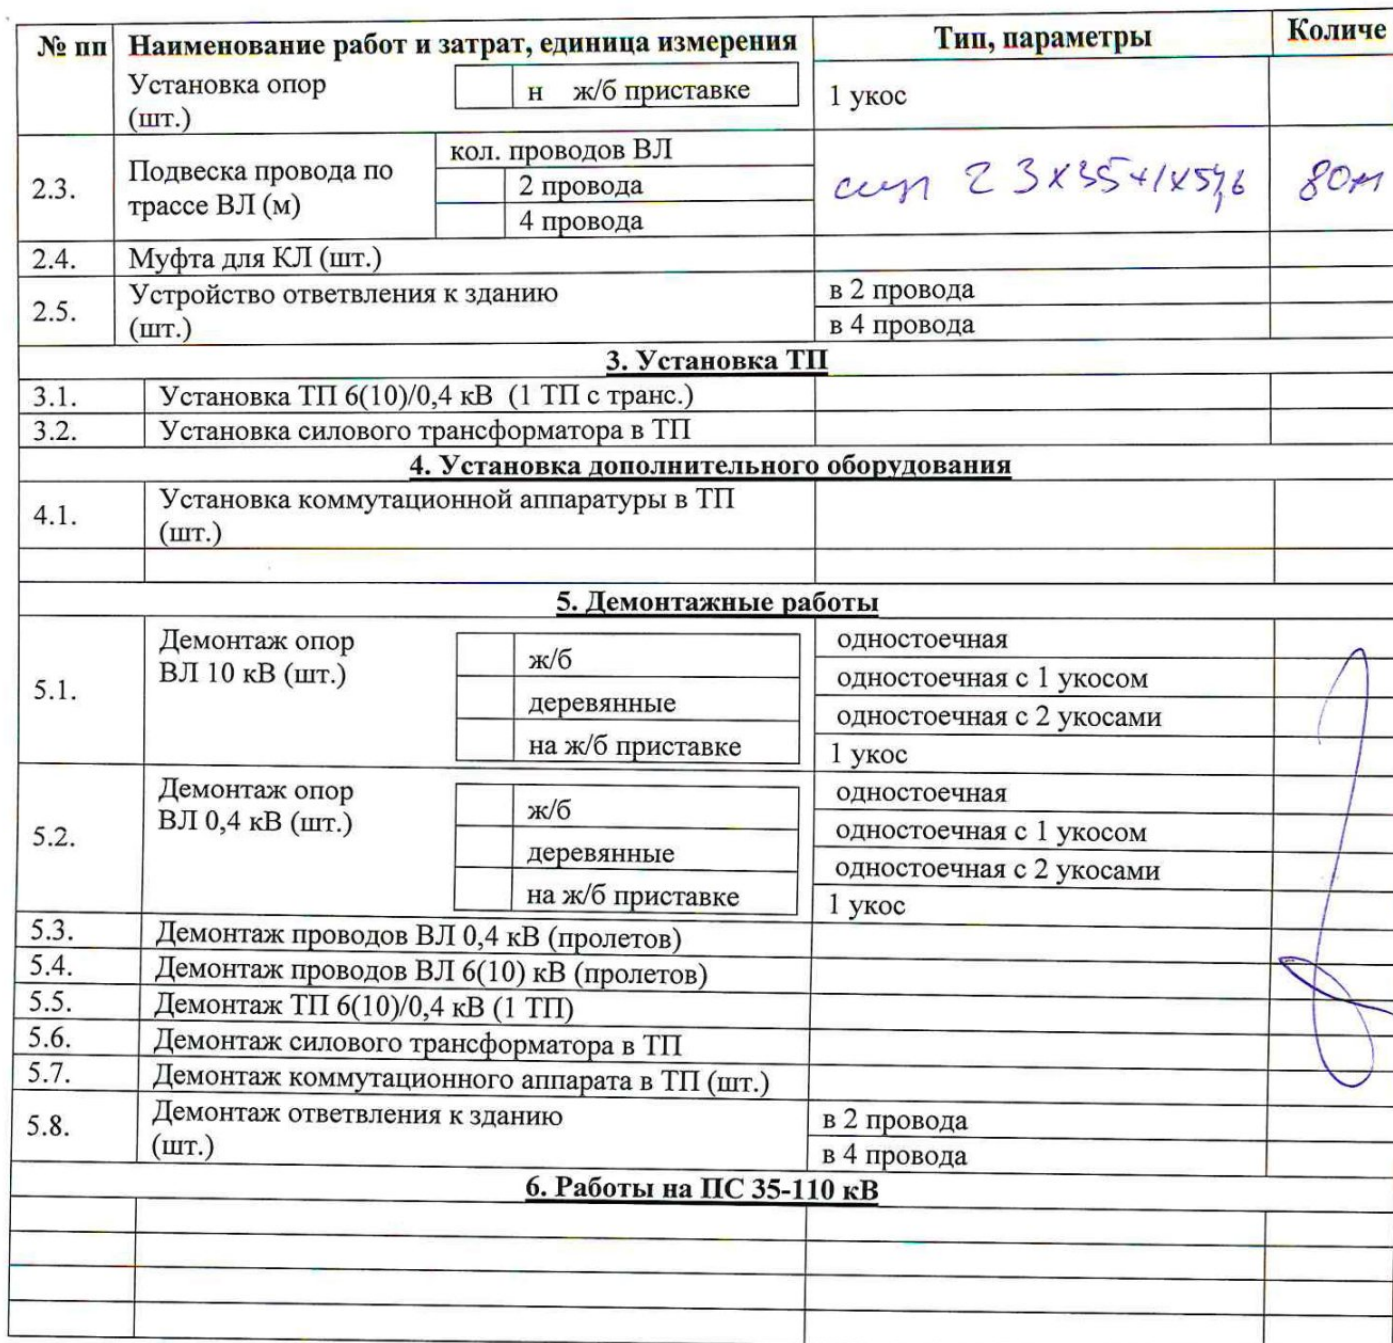 № пп Наименование работ и затрат, единица измерения Тип, параметры Количе
Установка опор
(шт.)
н ж/б приставке
1 укос
2.3.
Подвеска провода по
трассе ВЛ (м)
кол. проводов ВЛ
2 провода
4 провода
сип 2 3х35+1х54,6 80м
2.4. Муфта для КЛ (шт.)
2.5.
Устройство ответвления к зданию
(шт.)
в 2 провода
в 4 провода
3. Установка ТП
3.1. Установка ТП 6(10)/0,4 кВ (1 ТП с транс.)
3.2. Установка силового трансформатора в ТП
4. Установка дополнительного оборудования
4.1.
Установка коммутационной аппаратуры в ТП
(шт.)
5. Демонтажные работы
5.1.
Демонтаж опор
ВЛ 10 кВ (шт.)
ж/б
деревянные
на ж/б приставке
одностоечная
одностоечная с 1 укосом
одностоечная с 2 укосами
1 укос
5.2.
Демонтаж опор
ВЛ 0,4 кВ (шт.)
ж/б
деревянные
на ж/б приставке
одностоечная
одностоечная с 1 укосом
одностоечная с 2 укосами
1 укос
5.3. Демонтаж проводов ВЛ 0,4 кВ (пролетов)
5.4. Демонтаж проводов ВЛ 6(10) кВ (пролетов)
5.5. Демонтаж ТП 6(10)/0,4 кВ (1 ТП)
5.6. Демонтаж силового трансформатора в ТП
5.7. Демонтаж коммутационного аппарата в ТП (шт.)
5.8.
Демонтаж ответвления к зданию
(шт.)
в 2 провода
в 4 провода
6. Работы на ПС 35-110 кВ